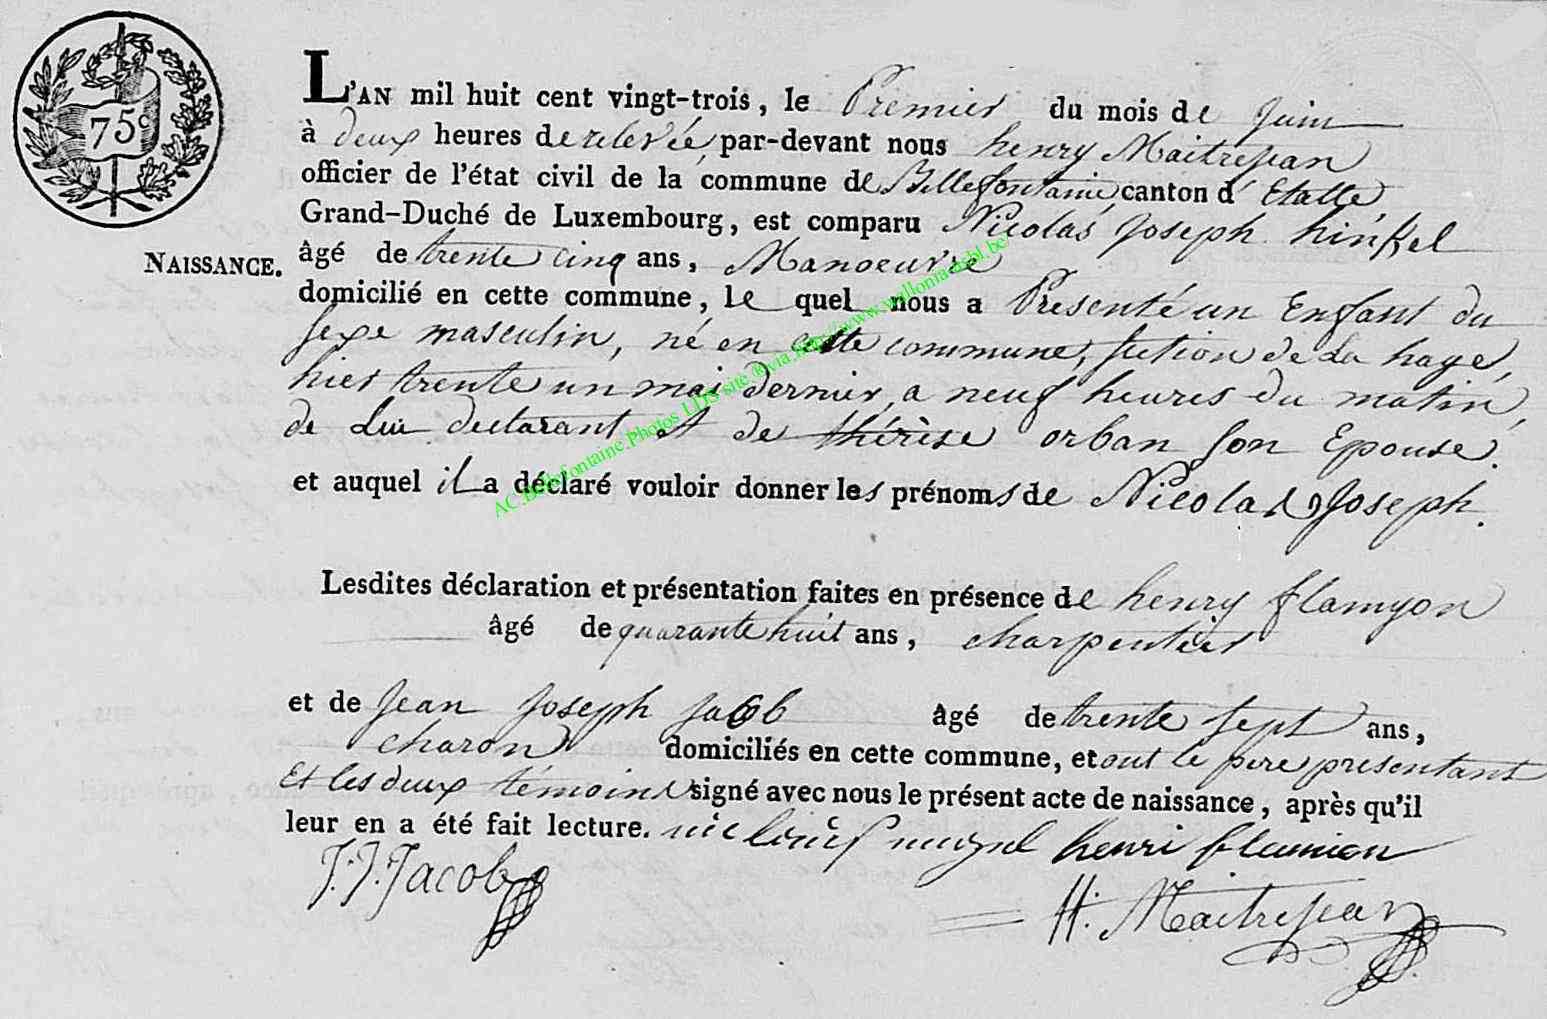 75c
L'AN mil huit cent vingt-trois, le Premier du mois de Juin
à deux heures de relevée, par-devant nous henry Maitrejean
officier de l'état civil de la commune de Bellefontaine, canton d'Etalle
Grand-Duché de Luxembourg, est comparu Nicolas Joseph hinkel
NAISSANCE.
âgé de trente cinq ans, Manoeuvre
domicilié en cette commune, le quel nous a Presenté un Enfant du
sexe masculin, né en cette commune, section de La haye,
hier trente un mai dernier, a neuf heures du matin,
de Lui declarant et de thérèse orban son Epouse.
et auquel il a déclaré vouloir donner les prénoms de Nicolas Joseph.
Lesdites déclaration et présentation faites en présence de henry flamyon
âgé de quarante huit ans, charpentier
et de Jean Joseph Jacob âgé de trente sept ans,
charon domiciliés en cette commune, et ont le pere presentant
Et les deux témoins signé avec nous le présent acte de naissance, après qu'il
leur en a été fait lecture. henri flamion
J. J. Jacob
H. Maitrejean
AC Bellefontaine Photos LDS site